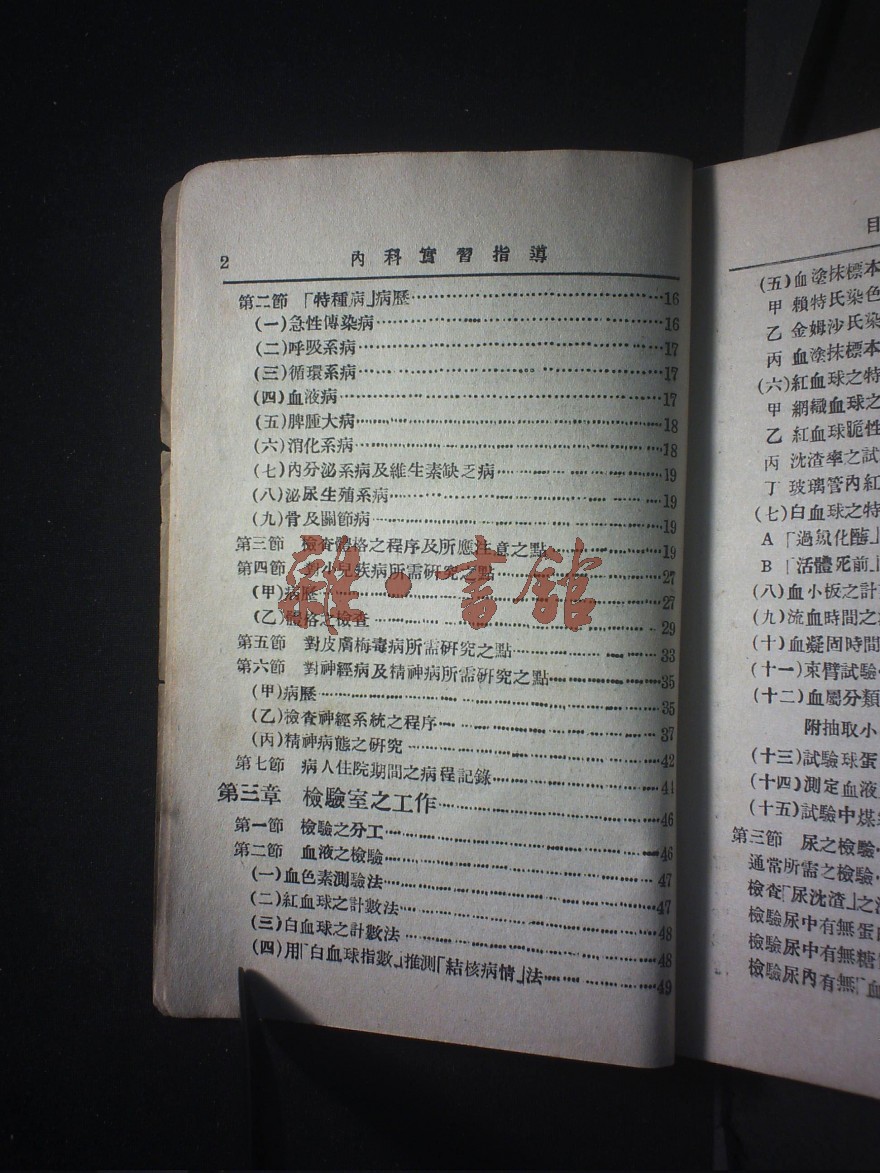 2 內科實習指導
第二節 「特種病」病歷……16
(一)急性傳染病……16
(二)呼吸系病……17
(三)循環系病……17
(四)血液病……17
(五)脾腫大病……18
(六)消化系病……18
(七)內分泌系病及維生素缺乏病……19
(八)泌尿生殖系病……19
(九)骨及關節病……19
第三節 檢查體格之程序及所應注意之點……19
第四節 對小兒疾病所需研究之點……27
(甲)病歷……27
(乙)體格之檢查……29
第五節 對皮膚梅毒病所需研究之點……33
第六節 對神經病及精神病所需研究之點……35
(甲)病歷……35
(乙)檢查神經系統之程序……37
(丙)精神病態之研究……42
第七節 病人住院期間之病程記錄……41
第三章 檢驗室之工作……46
第一節 檢驗之分工……46
第二節 血液之檢驗……47
(一)血色素測驗法……47
(二)紅血球之計數法……48
(三)白血球之計數法……48
(四)用「白血球指數」推測「結核病情」法……49
雜·書館
目
(五)血塗抹標本
甲 賴特氏染色
乙 金姆沙氏染
丙 血塗抹標本
(六)紅血球之特
甲 網織血球之
乙 紅血球脆性
丙 沈渣率之試
丁 玻璃管內紅
(七)白血球之特
A 「過氧化酶」
B 「活體死前」
(八)血小板之計
(九)流血時間之
(十)血凝固時間
(十一)束臂試驗
(十二)血屬分類
附抽取小
(十三)試驗球蛋
(十四)測定血液
(十五)試驗中煤
第三節 尿之檢驗
通常所需之檢驗
檢查「尿沈渣」之
檢驗尿中有無蛋
檢驗尿中有無糖
檢驗尿內有無「血